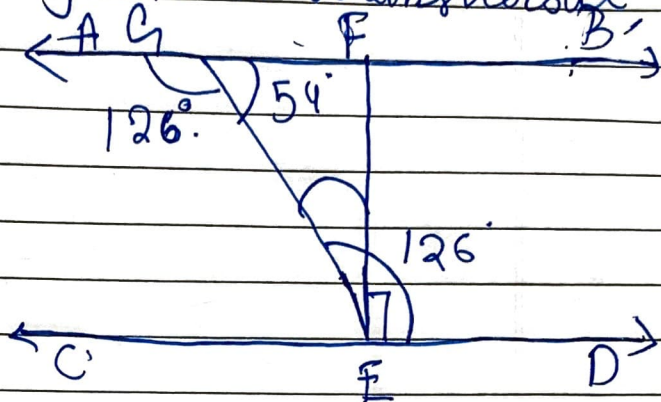 A G F B
126°. 54°
126°
C E D